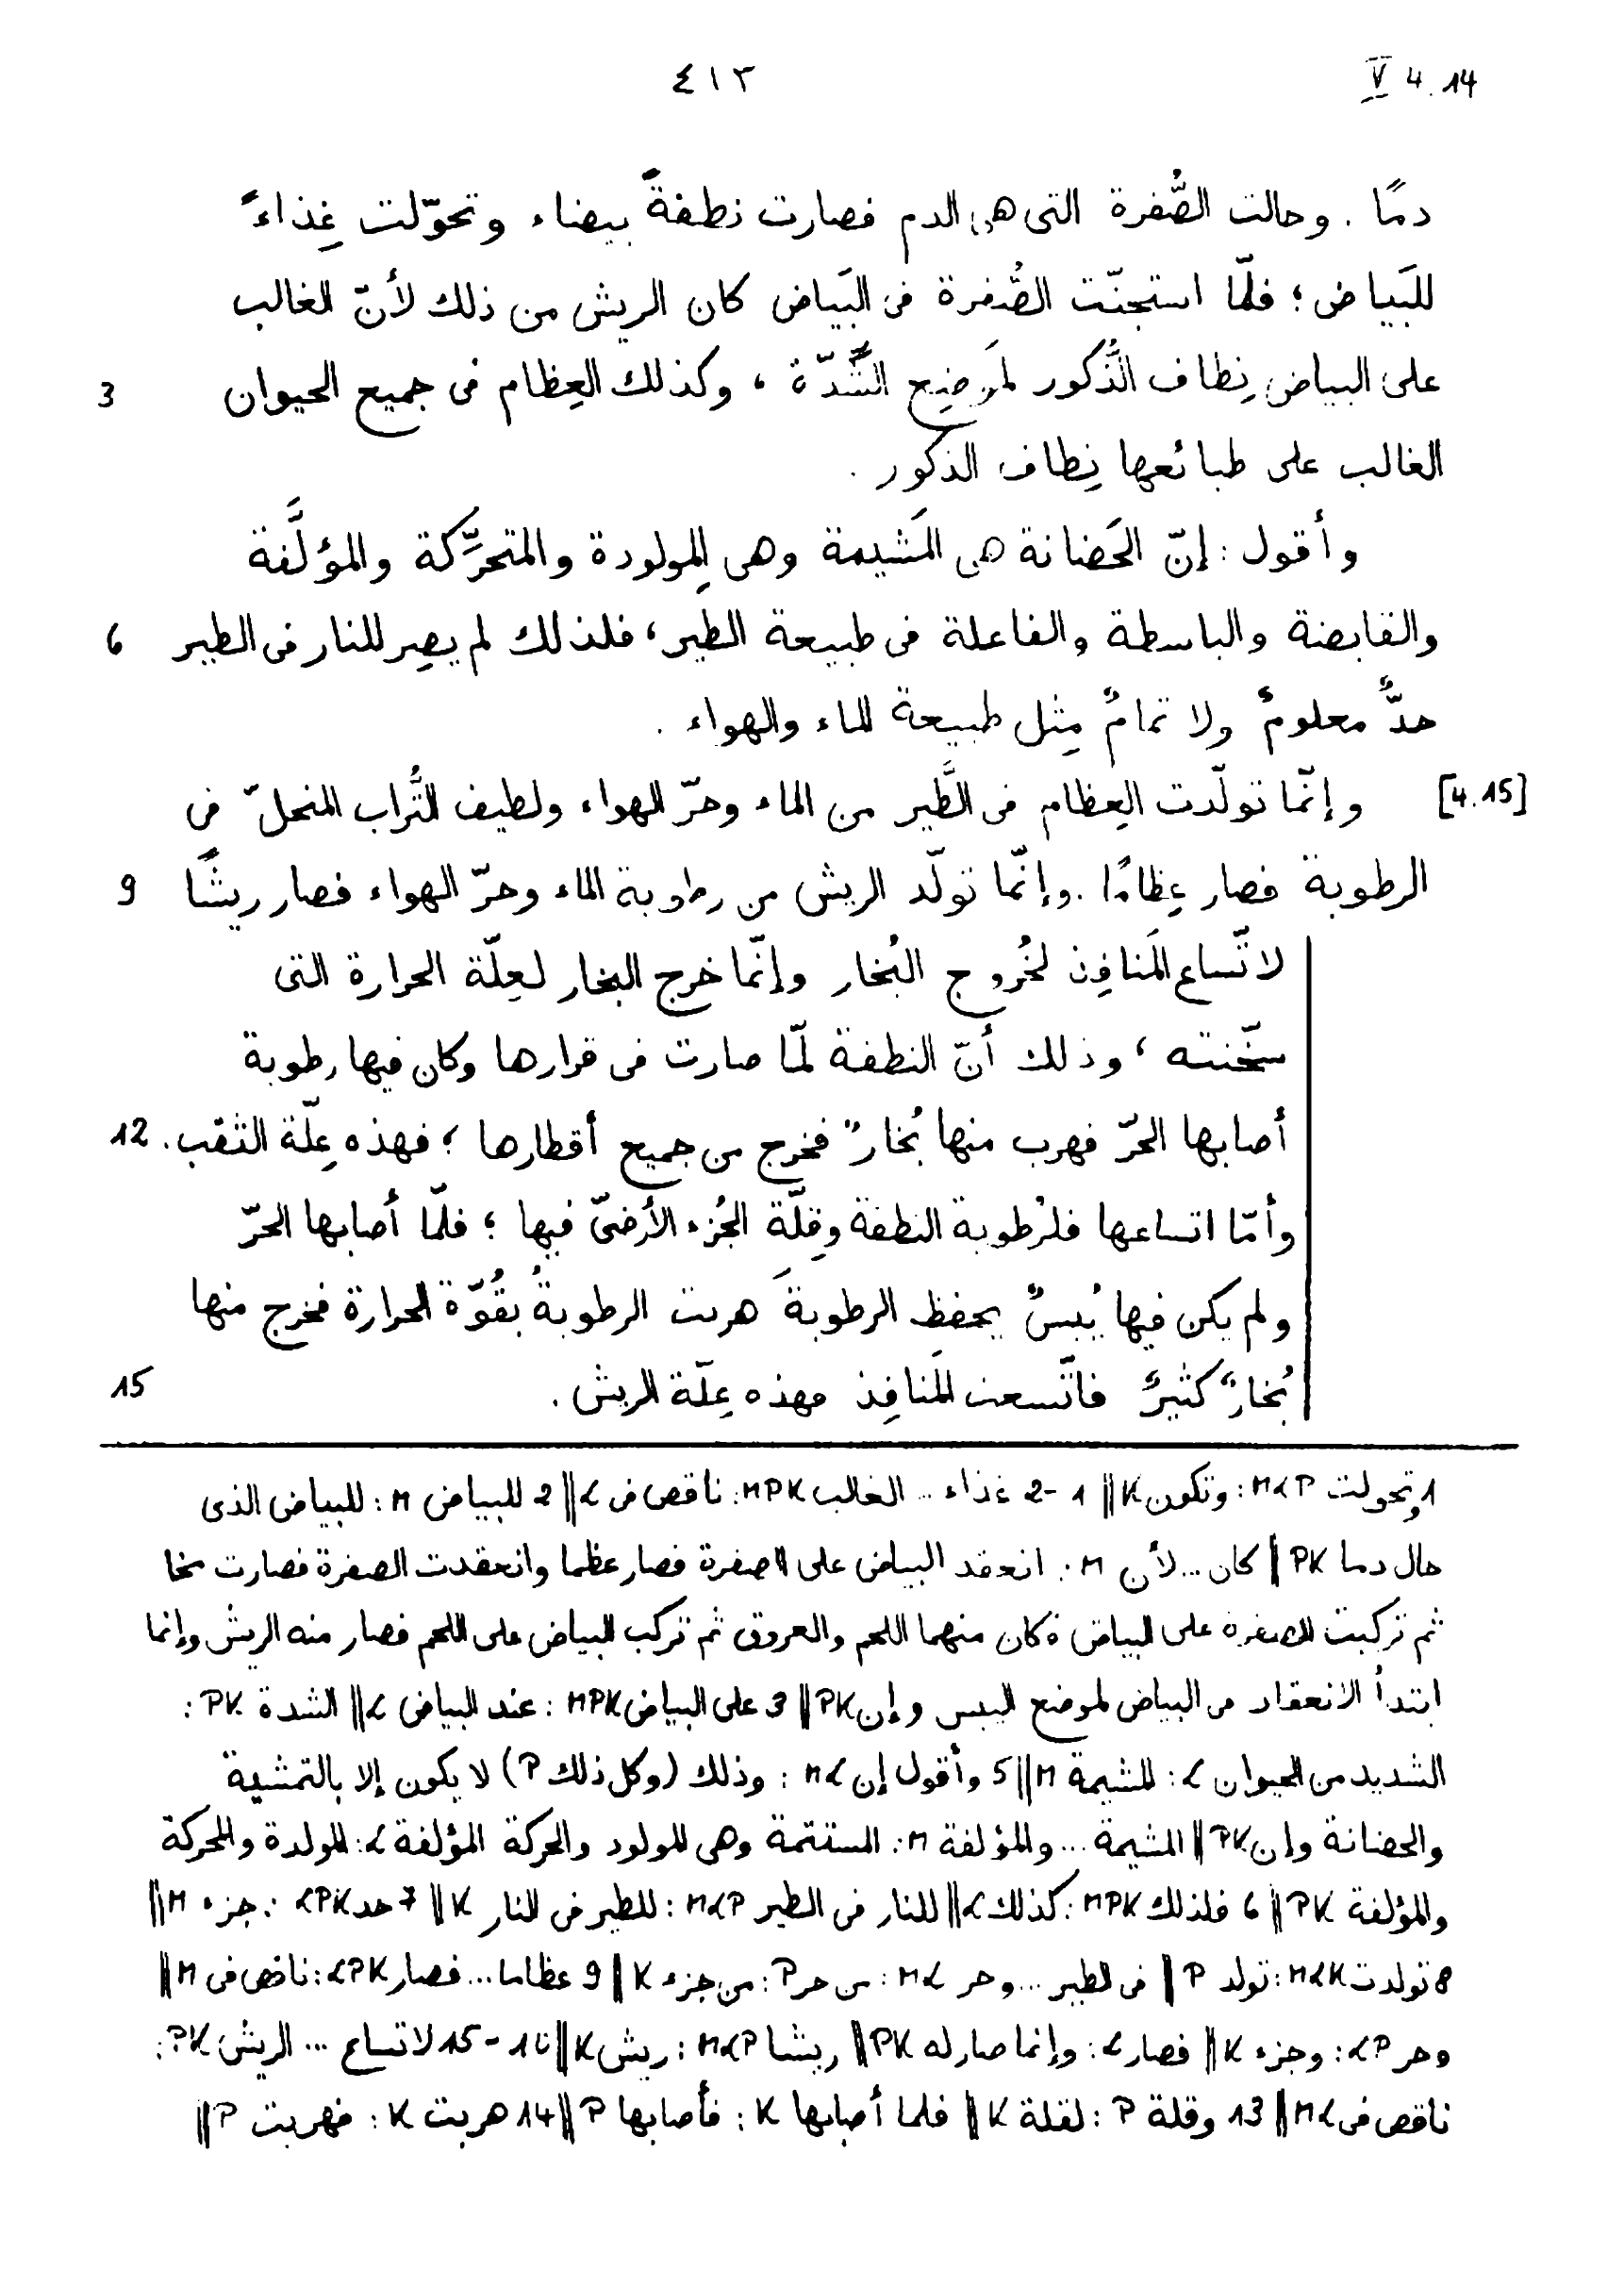 V 4.14 ٤١٣
دمًا . وحالت الصُّفرة التى هى الدم فصارت نطفةً بيضاء وتحوّلت غِذاءً
للبَياض ؛ فلمّا استجنّت الصُّفرة فى البَياض كان الريش من ذلك لأنّ الغالب
على البياض نِطاف الذُّكور لمَوضِع الشِّدّة ، وكذلك العِظام فى جميع الحيوان 3
الغالب على طبائعها نِطاف الذكور .
وأقول : إنّ الحَضانة هى المَشيمة وهى المولودة والمتحرِّكة والمؤلَّفة
والقابضة والباسطة والفاعلة فى طبيعة الطير ، فلذلك لم يصِر للنار فى الطير 6
حدٌّ معلومٌ ولا تمامٌ مِثل طبيعة الماء والهواء .
[4.15] وإنّما تولّدت العِظام فى الطَّير من الماء وحرّ الهواء ولطيف التُّراب المنحلّ فى
الرطوبة فصار عِظامًا . وإنّما تولّد الريش من رطوبة الماء وحرّ الهواء فصار ريشًا 9
لاتّساع المَنافِذ لخُروج البُخار وإنّما خرج البخار لعِلّة الحرارة التى
سخّنته ، وذلك أنّ النطفة لمّا صارت فى قرارها وكان فيها رطوبة
أصابها الحرّ فهرب منها بُخارٌ فخرج من جميع أقطارها ؛ فهذه عِلّة الثقب . 12
وأمّا اتساعها فلرُطوبة النطفة وقِلّة الجُزء الأرضىّ فيها ؛ فلمّا أصابها الحرّ
ولم يكن فيها يُبسٌ يحفظ الرطوبةَ هربت الرطوبةُ بقُوّة الحرارة فخرج منها
بُخارٌ كثيرٌ فاتّسعت المنافِذ فهذه عِلّة الريش . 15
1 وتحولت MLP : وتكون K || 1-2 غذاء ... الغالب MPK : ناقص فى L || 2 للبياض M : للبياض الذى
حال دما PK || كان ... لأن M : انعقد البياض على الصفرة فصار عظما وانعقدت الصفرة فصارت مخا
ثم تركبت الصفرة على البياض فكان منهما اللحم والعروق ثم تركب البياض على اللحم فصار منه الريش وإنما
ابتدأ الانعقاد من البياض لموضع اليبس وإن PK || 3 على البياض MPK : عند البياض L || الشدة PK :
الشديد من الحيوان L : المشيمة M || 5 وأقول إن ML : وذلك (وكل ذلك P) لا يكون إلا بالتمشية
والحضانة وإن PK || المشيمة ... والمؤلفة M : المستتمة وهى المولود والحركة المؤلفة L : المولدة والمحركة
والمؤلفة PK || 6 فلذلك MPK : كذلك L || للنار فى الطير MLP : للطير فى النار K || 7 حد LPK : جزء M ||
8 تولدت MLK : تولد P || فى الطير ... وحر ML : من حر P : من جزء K || 9 عظاما ... فصار LPK : ناقص فى M ||
وحر LP : وجزء K || فصار L : وإنما صار له PK || ريشا MLP : ريش K || 10-15 لاتساع ... الريش PK :
ناقص فى ML || 13 وقلة P : لقلة K || فلما أصابها K : فأصابها P || 14 هربت K : فهربت P ||